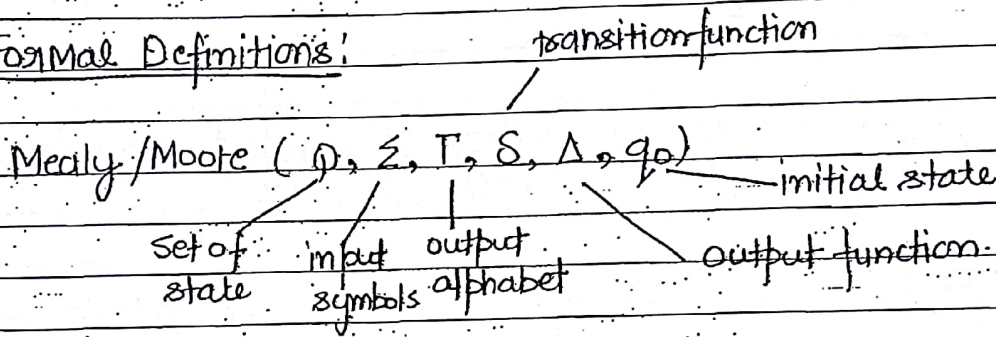 Formal Definitions:
transition function
Mealy/Moore (Q, Σ, Γ, δ, Δ, q0)
initial state
set of state
input symbols
output alphabet
output function.